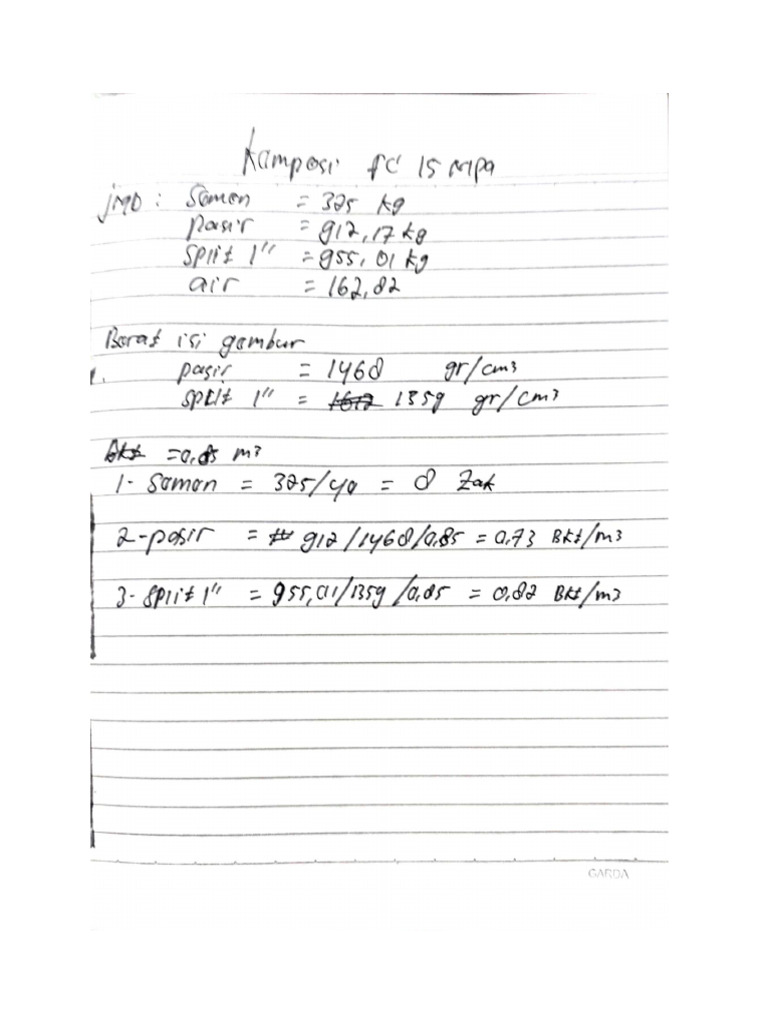 Komposisi fc' 15 Mpa
JMD : Semen = 325 kg
pasir = 912,17 kg
Split 1" = 955,01 kg
air = 162,82
Berat isi gembur
1. pasir = 1468 gr/cm3
split 1" = 1359 gr/cm3
Bkt = 0,85 m3
1- Semen = 325/40 = 8 Zak
2- pasir = 912/1468/0,85 = 0,73 Bkt/m3
3- Split 1" = 955,01/1359/0,85 = 0,82 Bkt/m3
GARDA